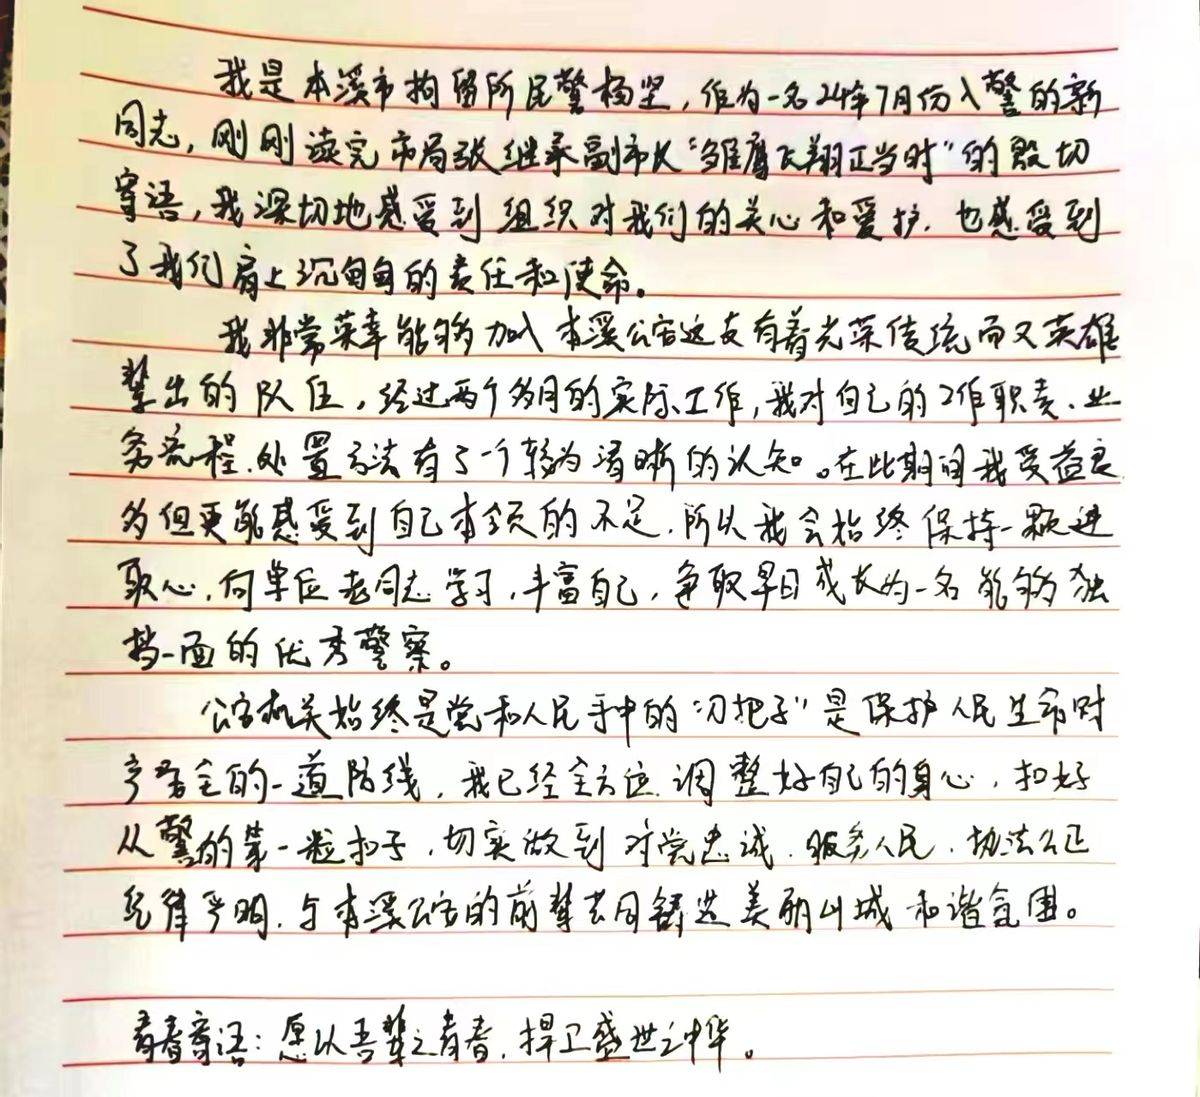 我是本溪市拘留所民警杨坚，作为一名24年7月份入警的新
同志，刚刚读完市局张继承副市长“雏鹰飞翔正当时”的殷切
寄语，我深切地感受到组织对我们的关心和爱护，也感受到
了我们肩上沉甸甸的责任和使命。
我非常荣幸能够加入本溪公安这支有着光荣传统而又英雄
辈出的队伍，经过两个多月的实际工作，我对自己的工作职责、业
务流程、处置方法有了一个较为清晰的认知。在此期间我受益良
多但更能感受到自己本领的不足，所以我会始终保持一颗进
取心，向单位老同志学习，丰富自己，争取早日成长为一名能够独
挡一面的优秀警察。
公安机关始终是党和人民手中的“刀把子”是保护人民生命财
产安全的一道防线，我已经全方位调整好自己的身心，扣好
从警的第一粒扣子，切实做到对党忠诚、服务人民、执法公正
纪律严明，与本溪公安的前辈共同铸造美丽山城和谐氛围。
青春寄语：愿以吾辈之青春，捍卫盛世之中华。